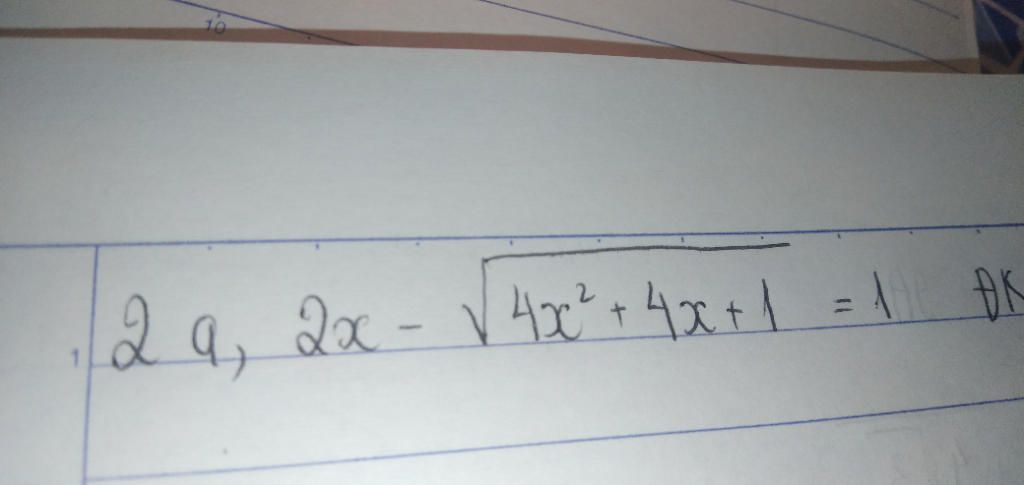 10
1
2 a, 2x - √(4x² + 4x + 1) = 1 ĐK